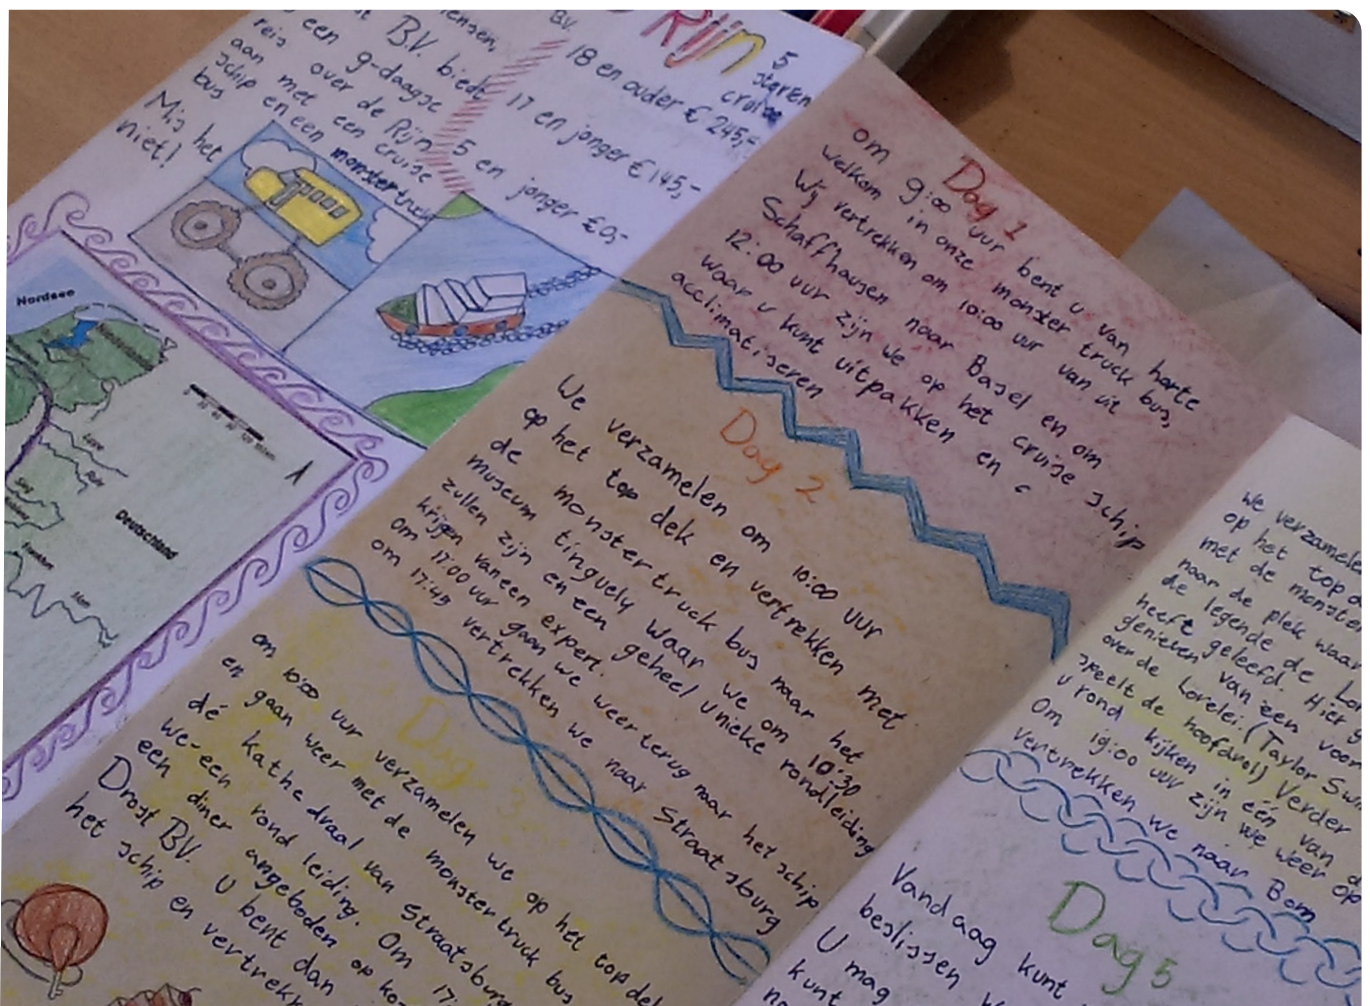 BV. biedt
een 9-daagse
reis over de Rijn
aan met een cruise
schip en een monstertruck
bus
Mis het
niet!
B.V.
Rijn
5
sterren
cruise
18 en ouder € 245,-
17 en jonger € 145,-
5 en jonger € 0,-
Nordsee
Deutschland
Ruhr
Sieg
Main
Dag 1
om 9:00 uur bent u van harte
welkom in onze monster truck bus,
Wij vertrekken om 10:00 uur van uit
Schaffhausen naar Basel en om
12:00 uur zijn we op het cruise schip
waar u kunt uitpakken en
acclimatiseren
Dag 2
We verzamelen om 10:00 uur
op het top dek en vertrekken met
de monstertruck bus naar het
museum tinguely waar we om 10:30
zullen zijn en een geheel unieke rondleiding
krijgen van een expert.
Om 17:00 uur gaan we weer terug naar het schip
om 17:45 vertrekken we naar Straatsburg
Dag 3
om 10:00 uur verzamelen we op het top dek
en gaan weer met de monstertruck bus
dé kathedraal van Straatsburg
we een rond leiding. Om 17:
een diner angeboden op
Drost BV. U bent dan
het schip en
We verzamele
op het top d
met de monster
naar de plek waar
de legende de Lo
heeft geleefd. Hier
genieten van een voor
over de Lorelei. (Taylor Swi
speelt de hoofdrol) Verder
u rond kijken in één van d
Om 19:00 uur zijn we weer op
vertrekken we naar Bonn
Dag 5
Vandaag kunt
beslissen
U mag
kunt